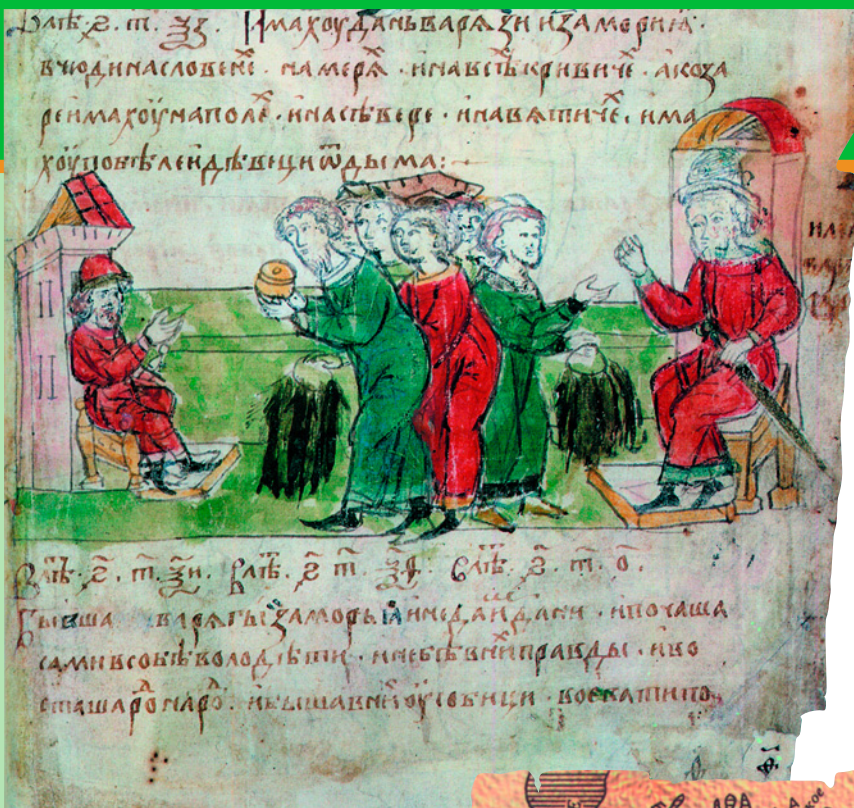 Влѣⷮ· ѕ҃· т҃· ѯ҃з· Имахоуданьварѧзиизаморіѧ·
вчюдинасловенеⷯ· намерѧⷯ· инавсѣⷯкривичеⷯ· акоза
реимахоуⷩаполѧⷯ· инасѣвере· инавѧтичеⷯ· има
хоуповѣлеидѣвеци ѿдыма:
Влѣⷮ· ѕ҃· т҃· ѯ҃и· Влѣⷮ· ѕ҃ т҃ ѯ҃ѳ· Влѣⷮ· ѕ҃· т҃· о҃·
варѧгызаморьꙗинедаⷲидани· ипочаша
самивсобѣволодѣти· инебѣвниⷯправды· иво
сташароⷣнароⷣ· ибышавниⷯоусобици· воеватипо
АѲА